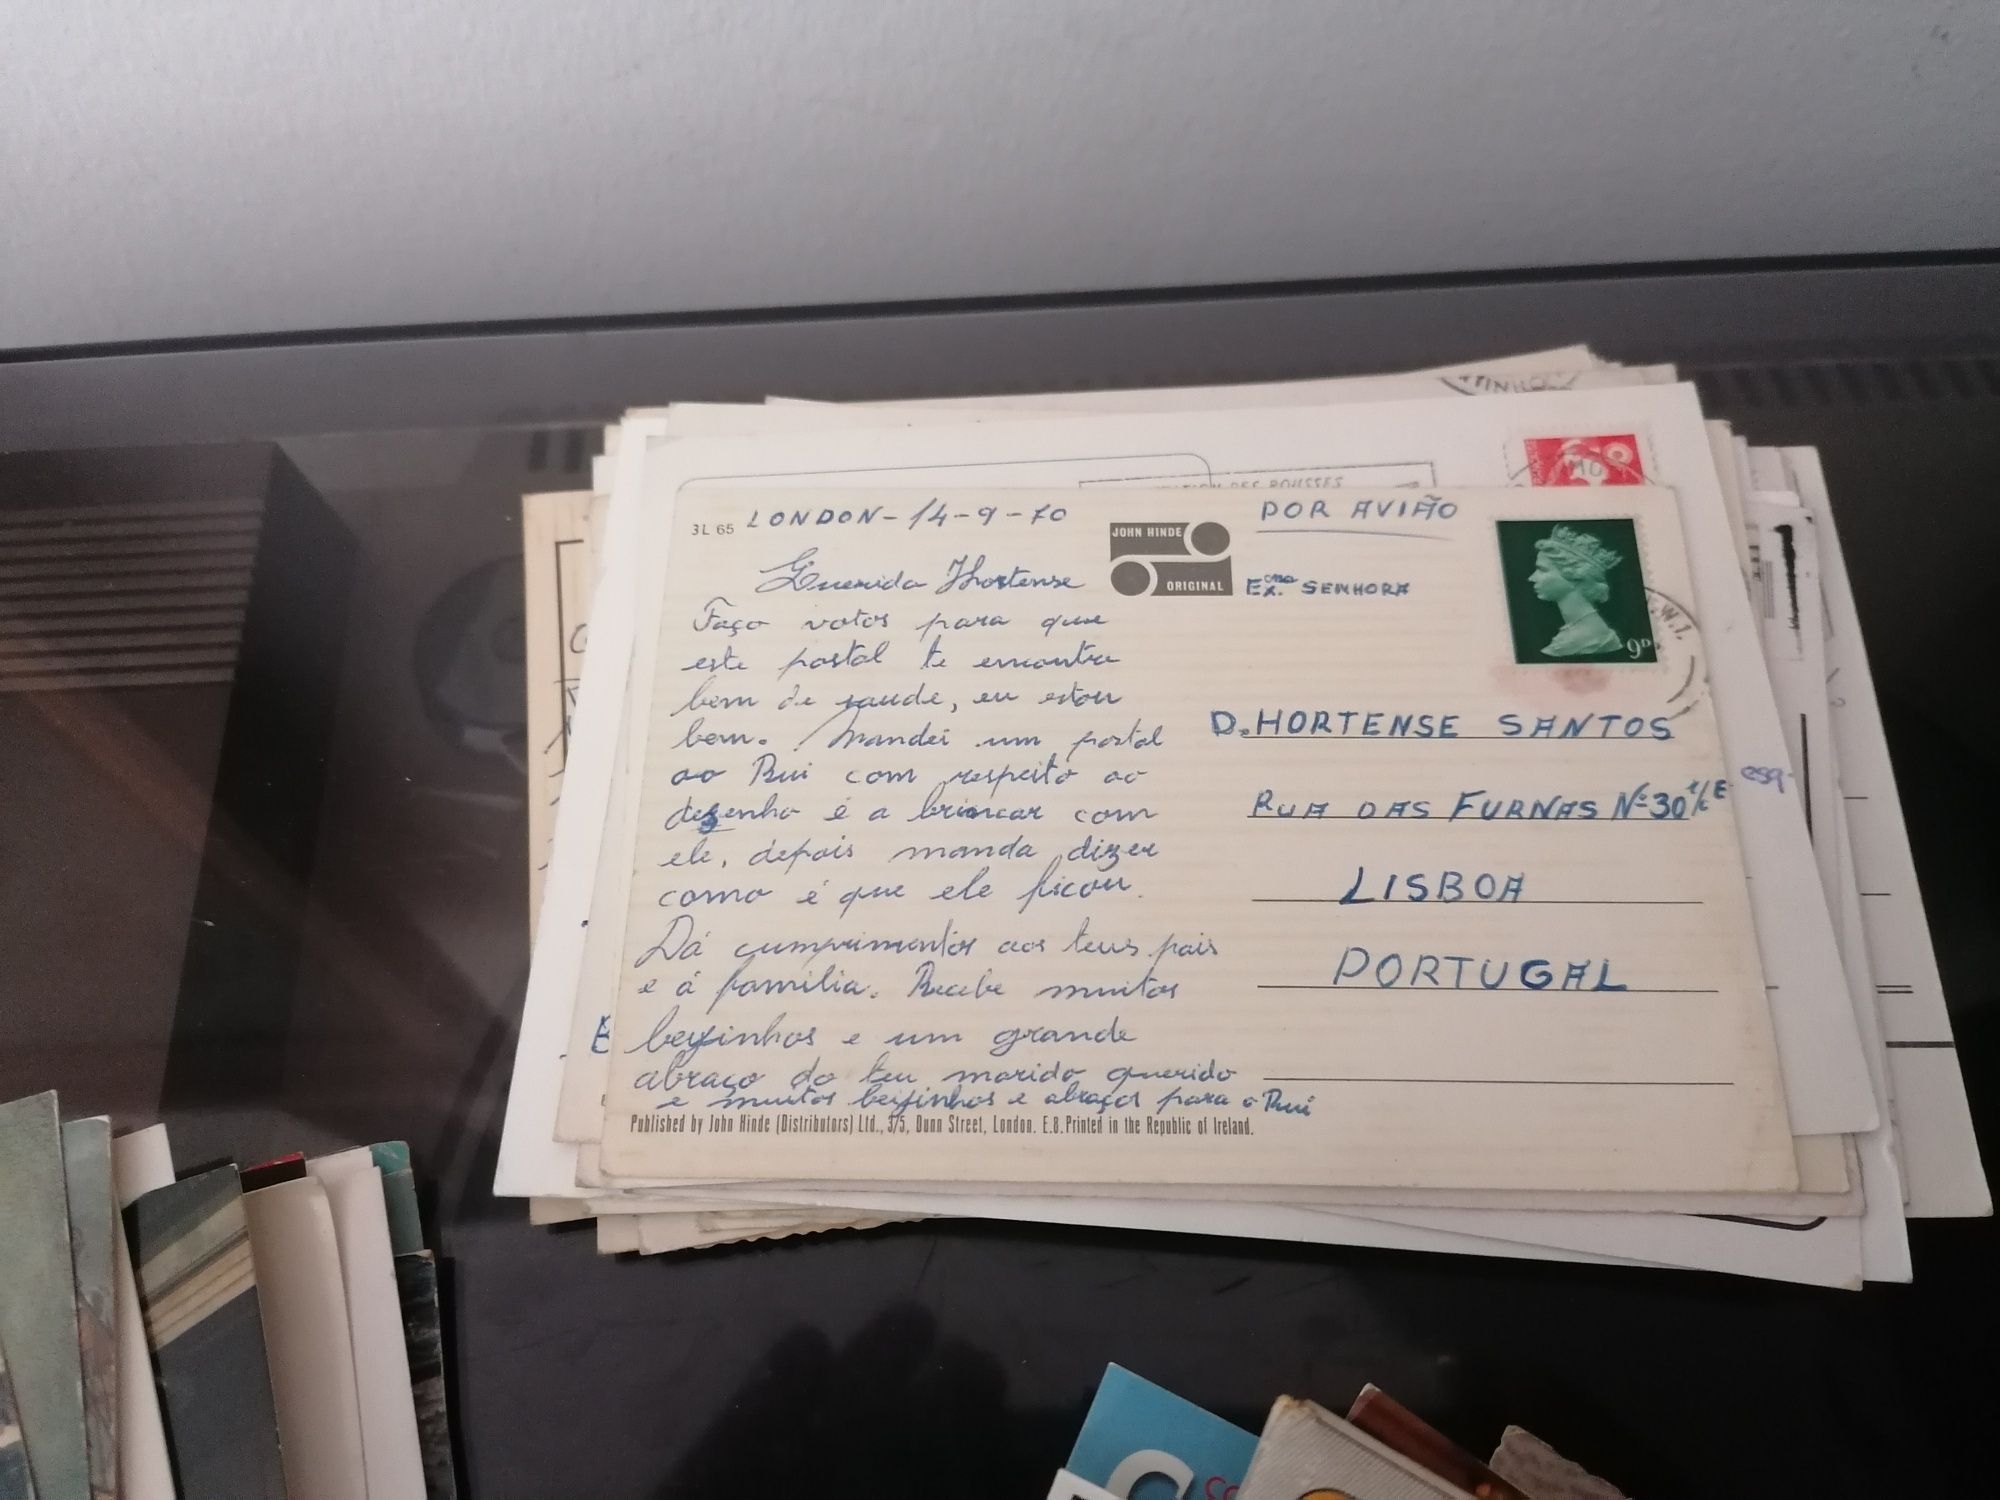 TINHO
STATION DES ROUSSES
3L 65 LONDON - 14-9-70
JOHN HINDE
ORIGINAL
POR AVIÃO
Exma. SENHORA
9D
W.1.
Querida Hortense
Faço votos para que
este postal te encontre
bem de saude, eu estou
bem. Mandei um postal
ao Rui com respeito ao
desenho é a brincar com
ele, depois manda dizer
como é que ele ficou.
Dá cumprimentos aos teus pais
e á familia. Recebe muitos
beijinhos e um grande
abraço do teu marido querido
e muitos beijinhos e abraços para o Rui
D. HORTENSE SANTOS
RUA DAS FURNAS Nº 30 r/c E
esq.
LISBOA
PORTUGAL
Published by John Hinde (Distributors) Ltd., 3/5, Dunn Street, London. E.8. Printed in the Republic of Ireland.